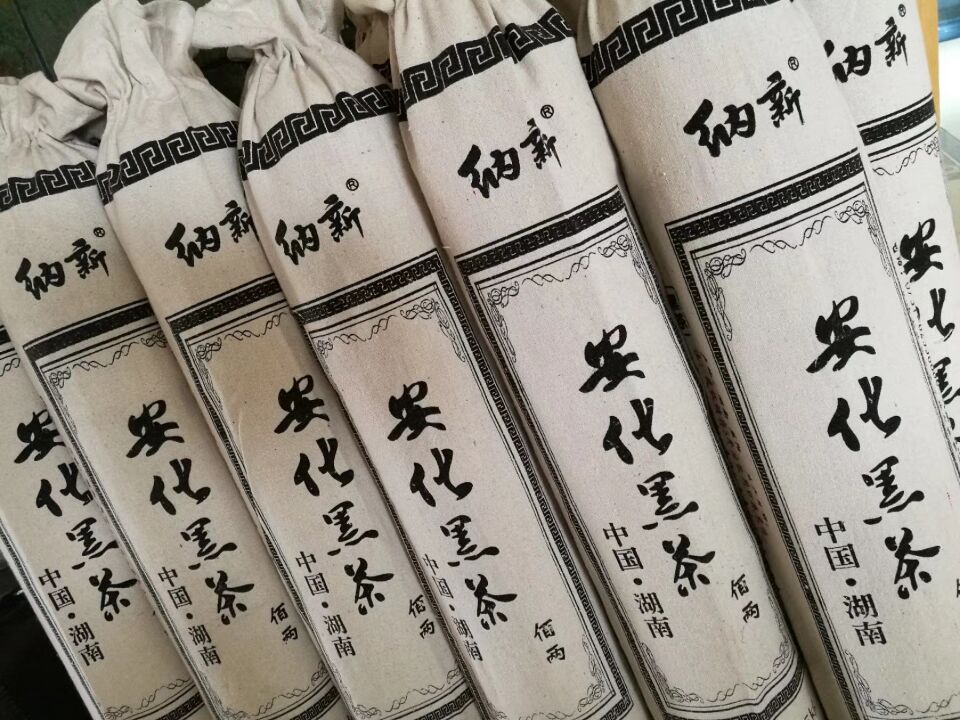 安化黑茶
中国·湖南
纳新®
安化黑茶
中国·湖南
佰两
纳新
安化黑茶
中国·湖南
佰两
纳新®
安化黑茶
中国·湖南
佰两
纳新®
安化黑茶
中国·湖南
佰两
纳新®
安化黑茶
中国·湖南
纳新®
安化黑